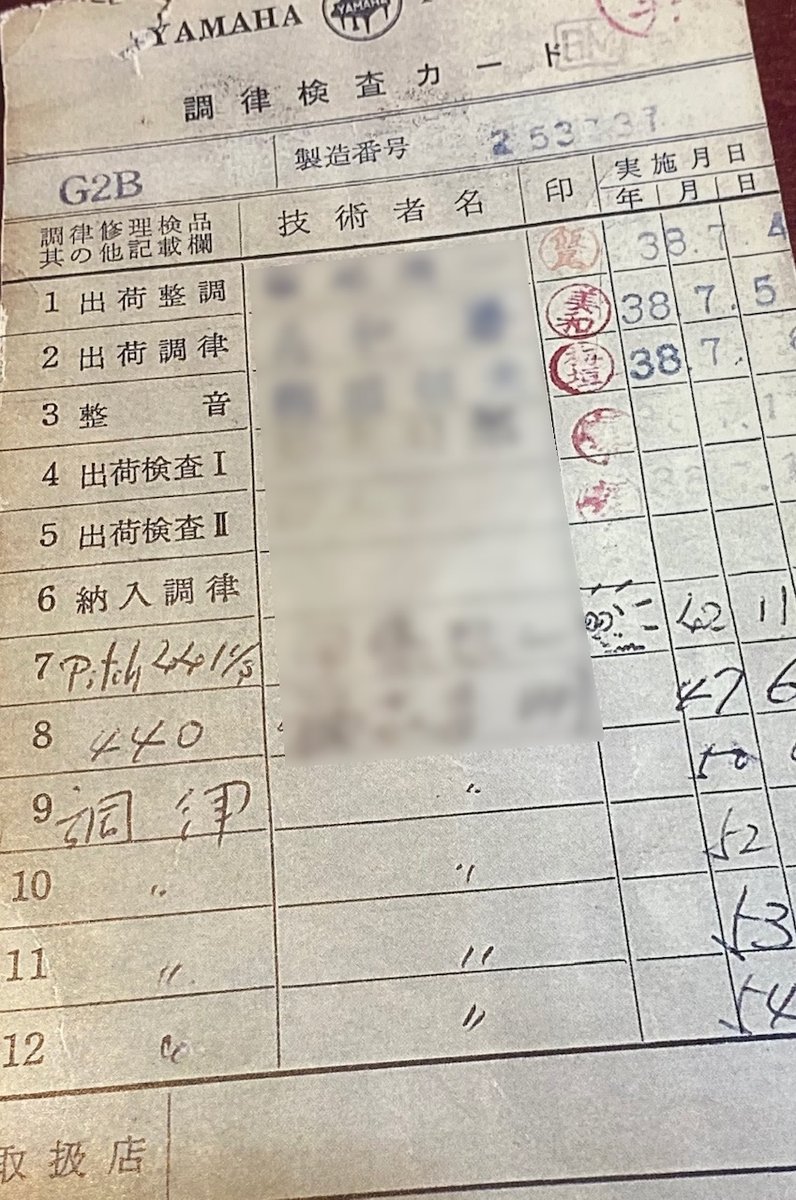 YAMAHA
YAMAHA
調律検査カード
G2B 製造番号 253737
調律修理検品
其の他記載欄
技術者名 印 実施月日
年 月 日
38.7.4
1 出荷整調 美和 38 7.5
2 出荷調律 38.7.
3 整音
4 出荷検査I
5 出荷検査II
6 納入調律
7 Pitch 42 11
8 440 47 6
9 調律 〃 50
10 〃 〃 52
11 〃 〃 53
12 〃 〃 54
取扱店